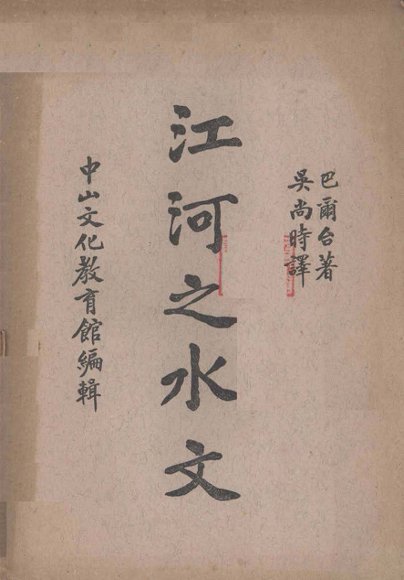 巴爾台著
吳尚時譯
江河之水文
中山文化教育館編輯